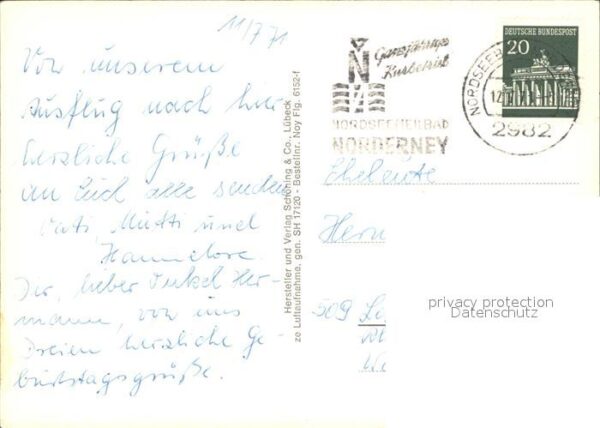 11/7 71
Von unserem
Ausflug nach hier
herzliche Grüße
an Euch alle senden
Vati, Mutti und
Hannelore.
Dir, lieber Onkel Her-
mann, von uns
Dreien herzliche Ge-
burtstagsgrüße.
Hersteller und Verlag Schöning & Co., Lübeck
ze Luftaufnahme, gen. SH 17120 - Bestellnr. Noy Flg. 6152-f
Ganzjähriger
Kurbetrieb
N
NORDSEEHEILBAD
NORDERNEY
DEUTSCHE BUNDESPOST
20
NORDSEE
12.
2982
Eheleute
Herm
509
privacy protection
Datenschutz